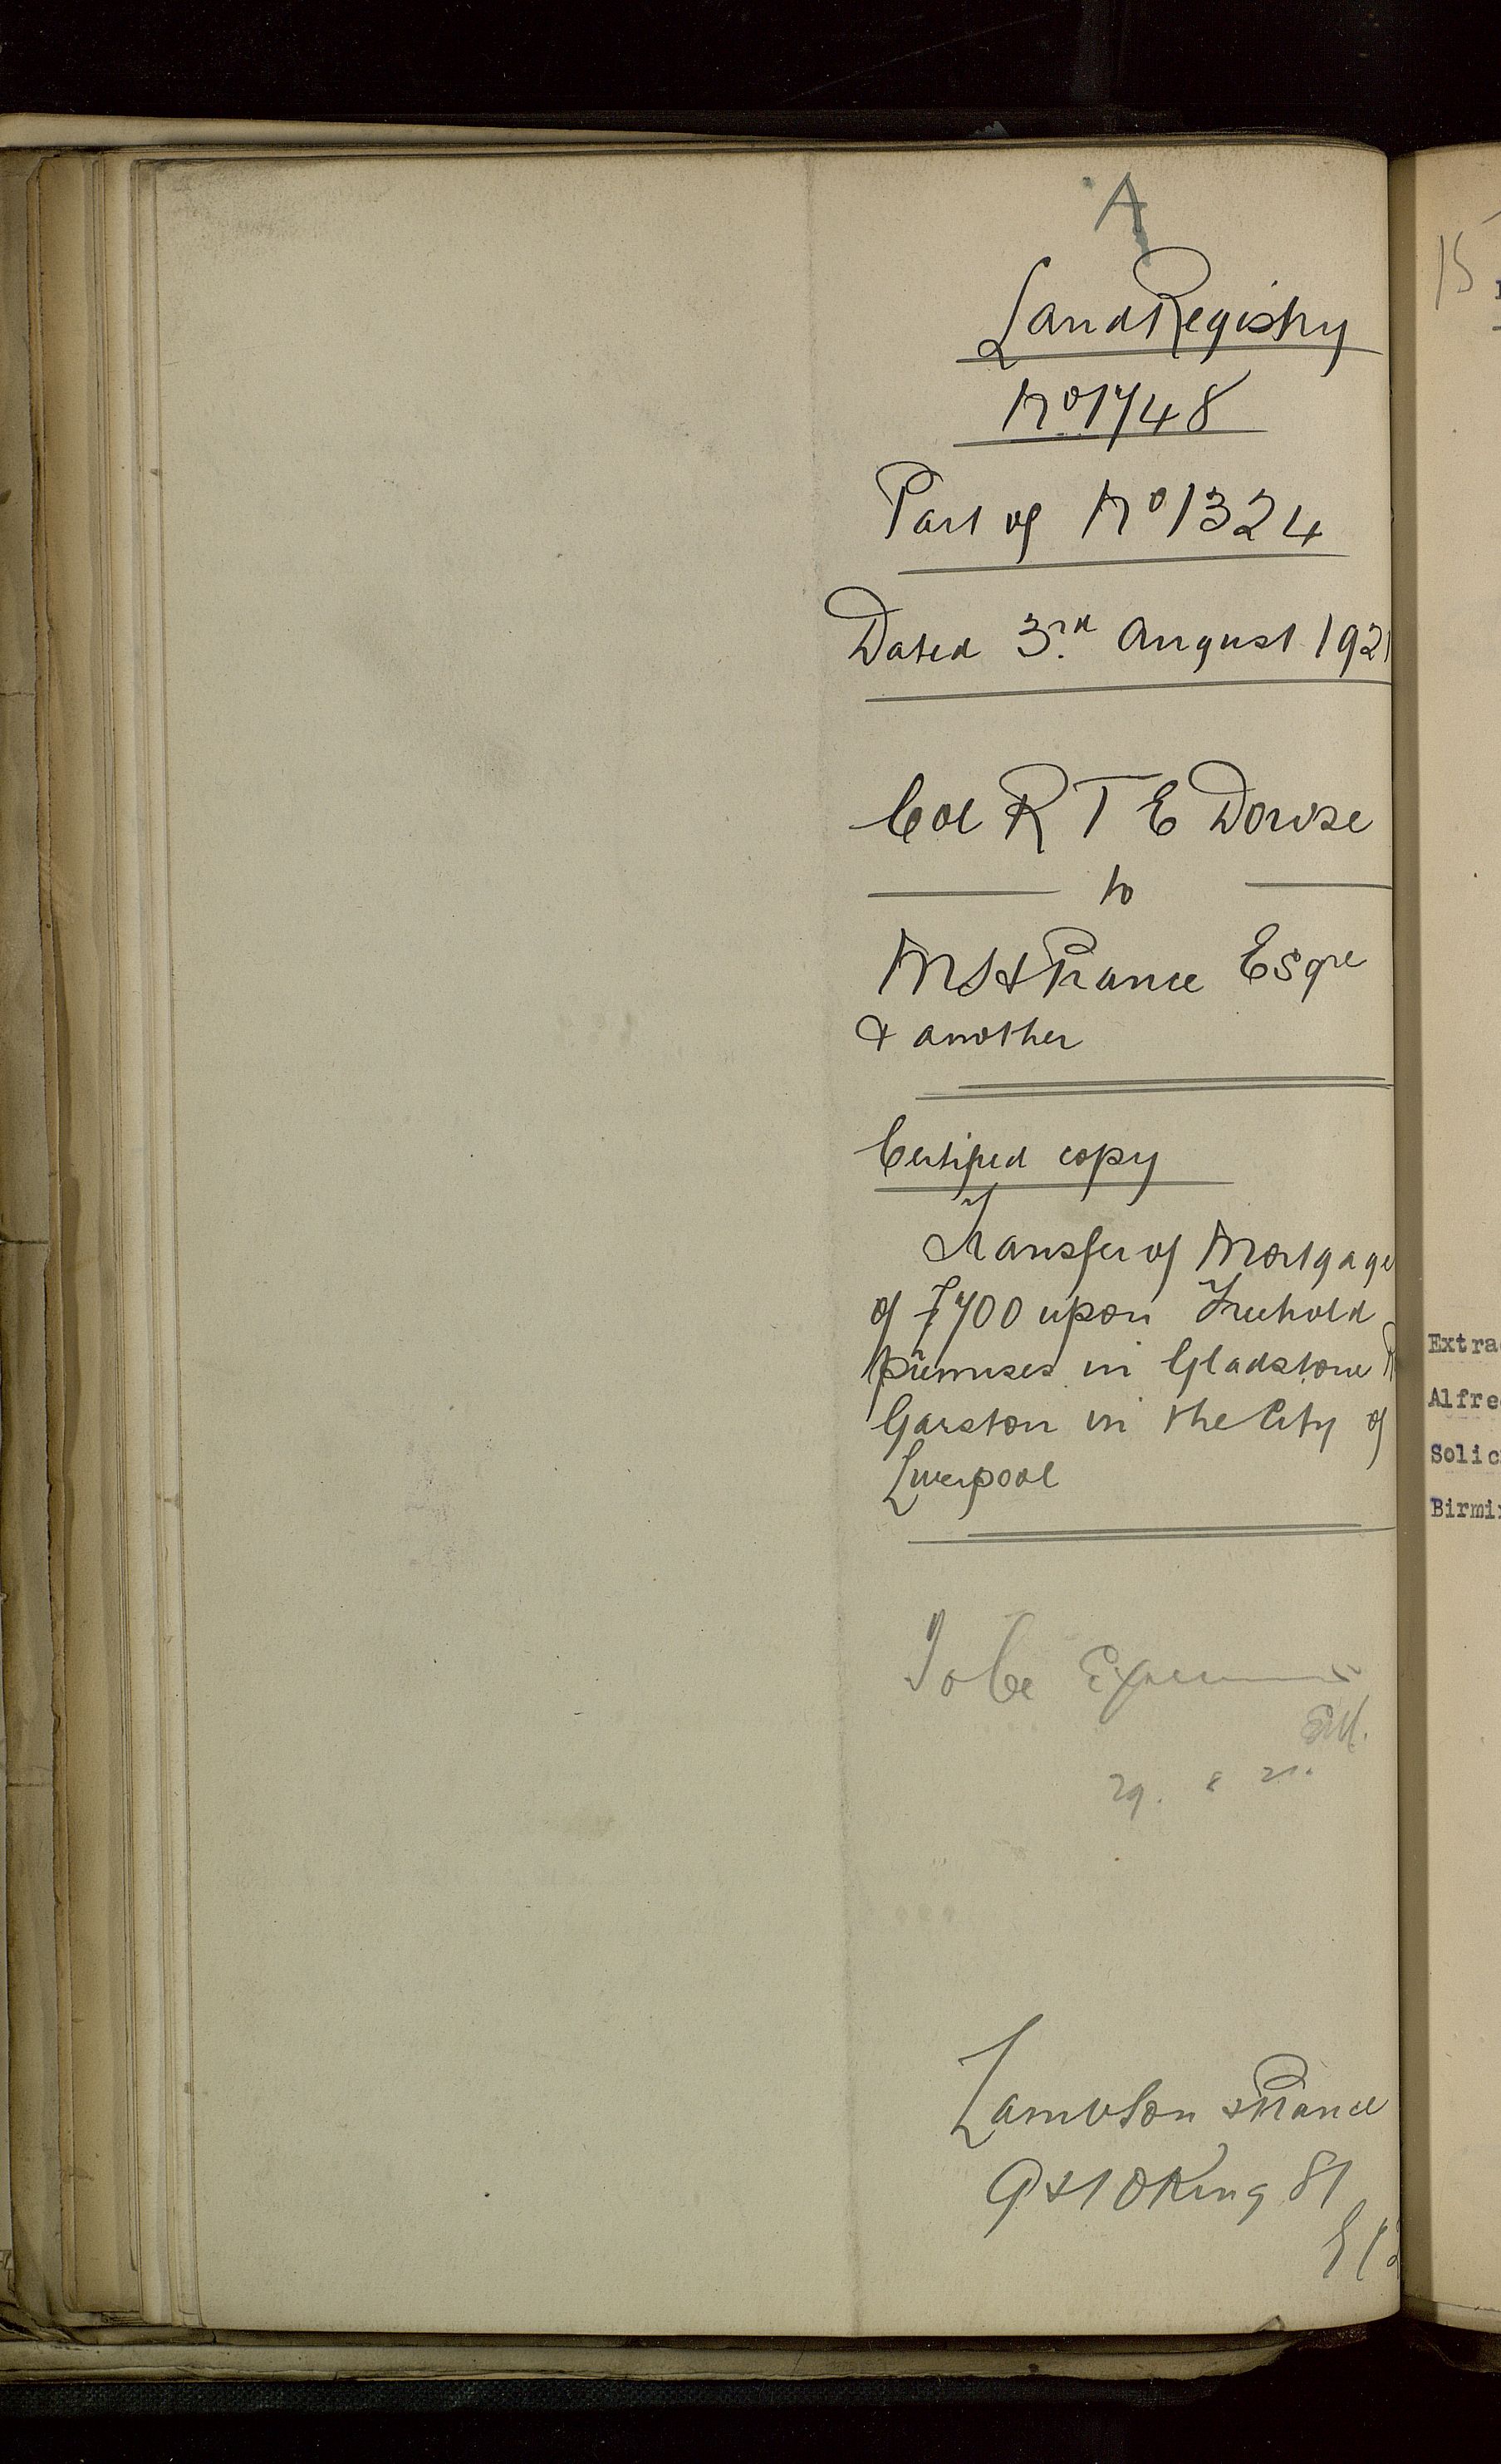 A
Land Registry
No 1748
Part of No 1324
Dated 3rd August 1921
Col R T E Dowse
to
M S H Prance Esqre
& another
Certified copy
Transfer of Mortgage
of £700 upon Freehold
premises in Gladstone R
Garston in the City of
Liverpool
To be
29. 8 21.
& Prance
9 & 10 King St
E C 2
15
Extra
Alfre
Solic
Birmi